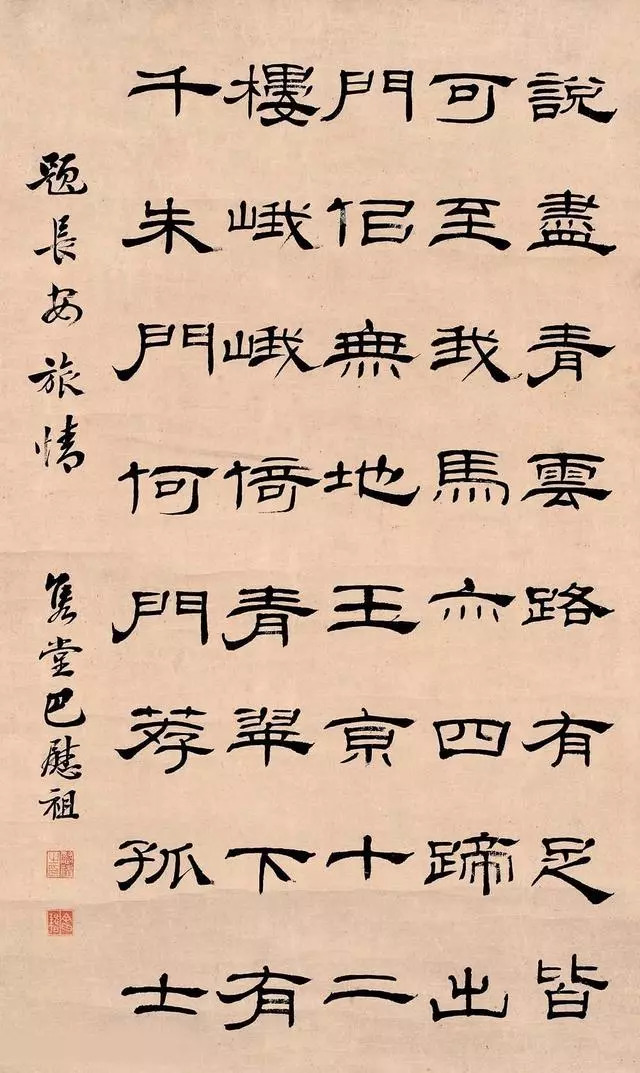 說盡青雲路有足皆
可至我馬亦四蹄出
門佀無地玉京十二
樓峨峨倚青翠下有
千朱門何門荐孤士
題長安旅情
雋堂巴慰祖